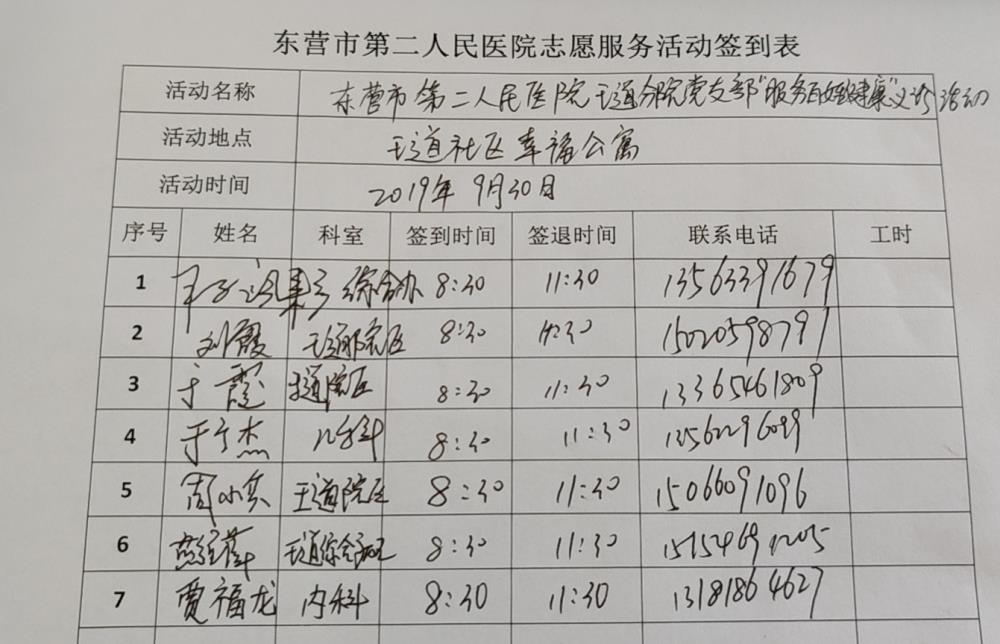 东营市第二人民医院志愿服务活动签到表
活动名称 东营市第二人民医院王道分院党支部"服务百姓健康"义诊活动
活动地点 王道社区幸福公寓
活动时间 2019年9月30日
序号 姓名 科室 签到时间 签退时间 联系电话 工时
1 综合办 8:30 11:30 13563391679
2 刘霞 8:30 11:30 15020598791
3 于霞 院区 8:30 11:30 13365461809
4 儿科 8:30 11:30
5 周小兵 王道院区 8:30 11:30 15066091096
6 8:30 11:30 15154691205
7 贾福龙 内科 8:30 11:30 13181864627